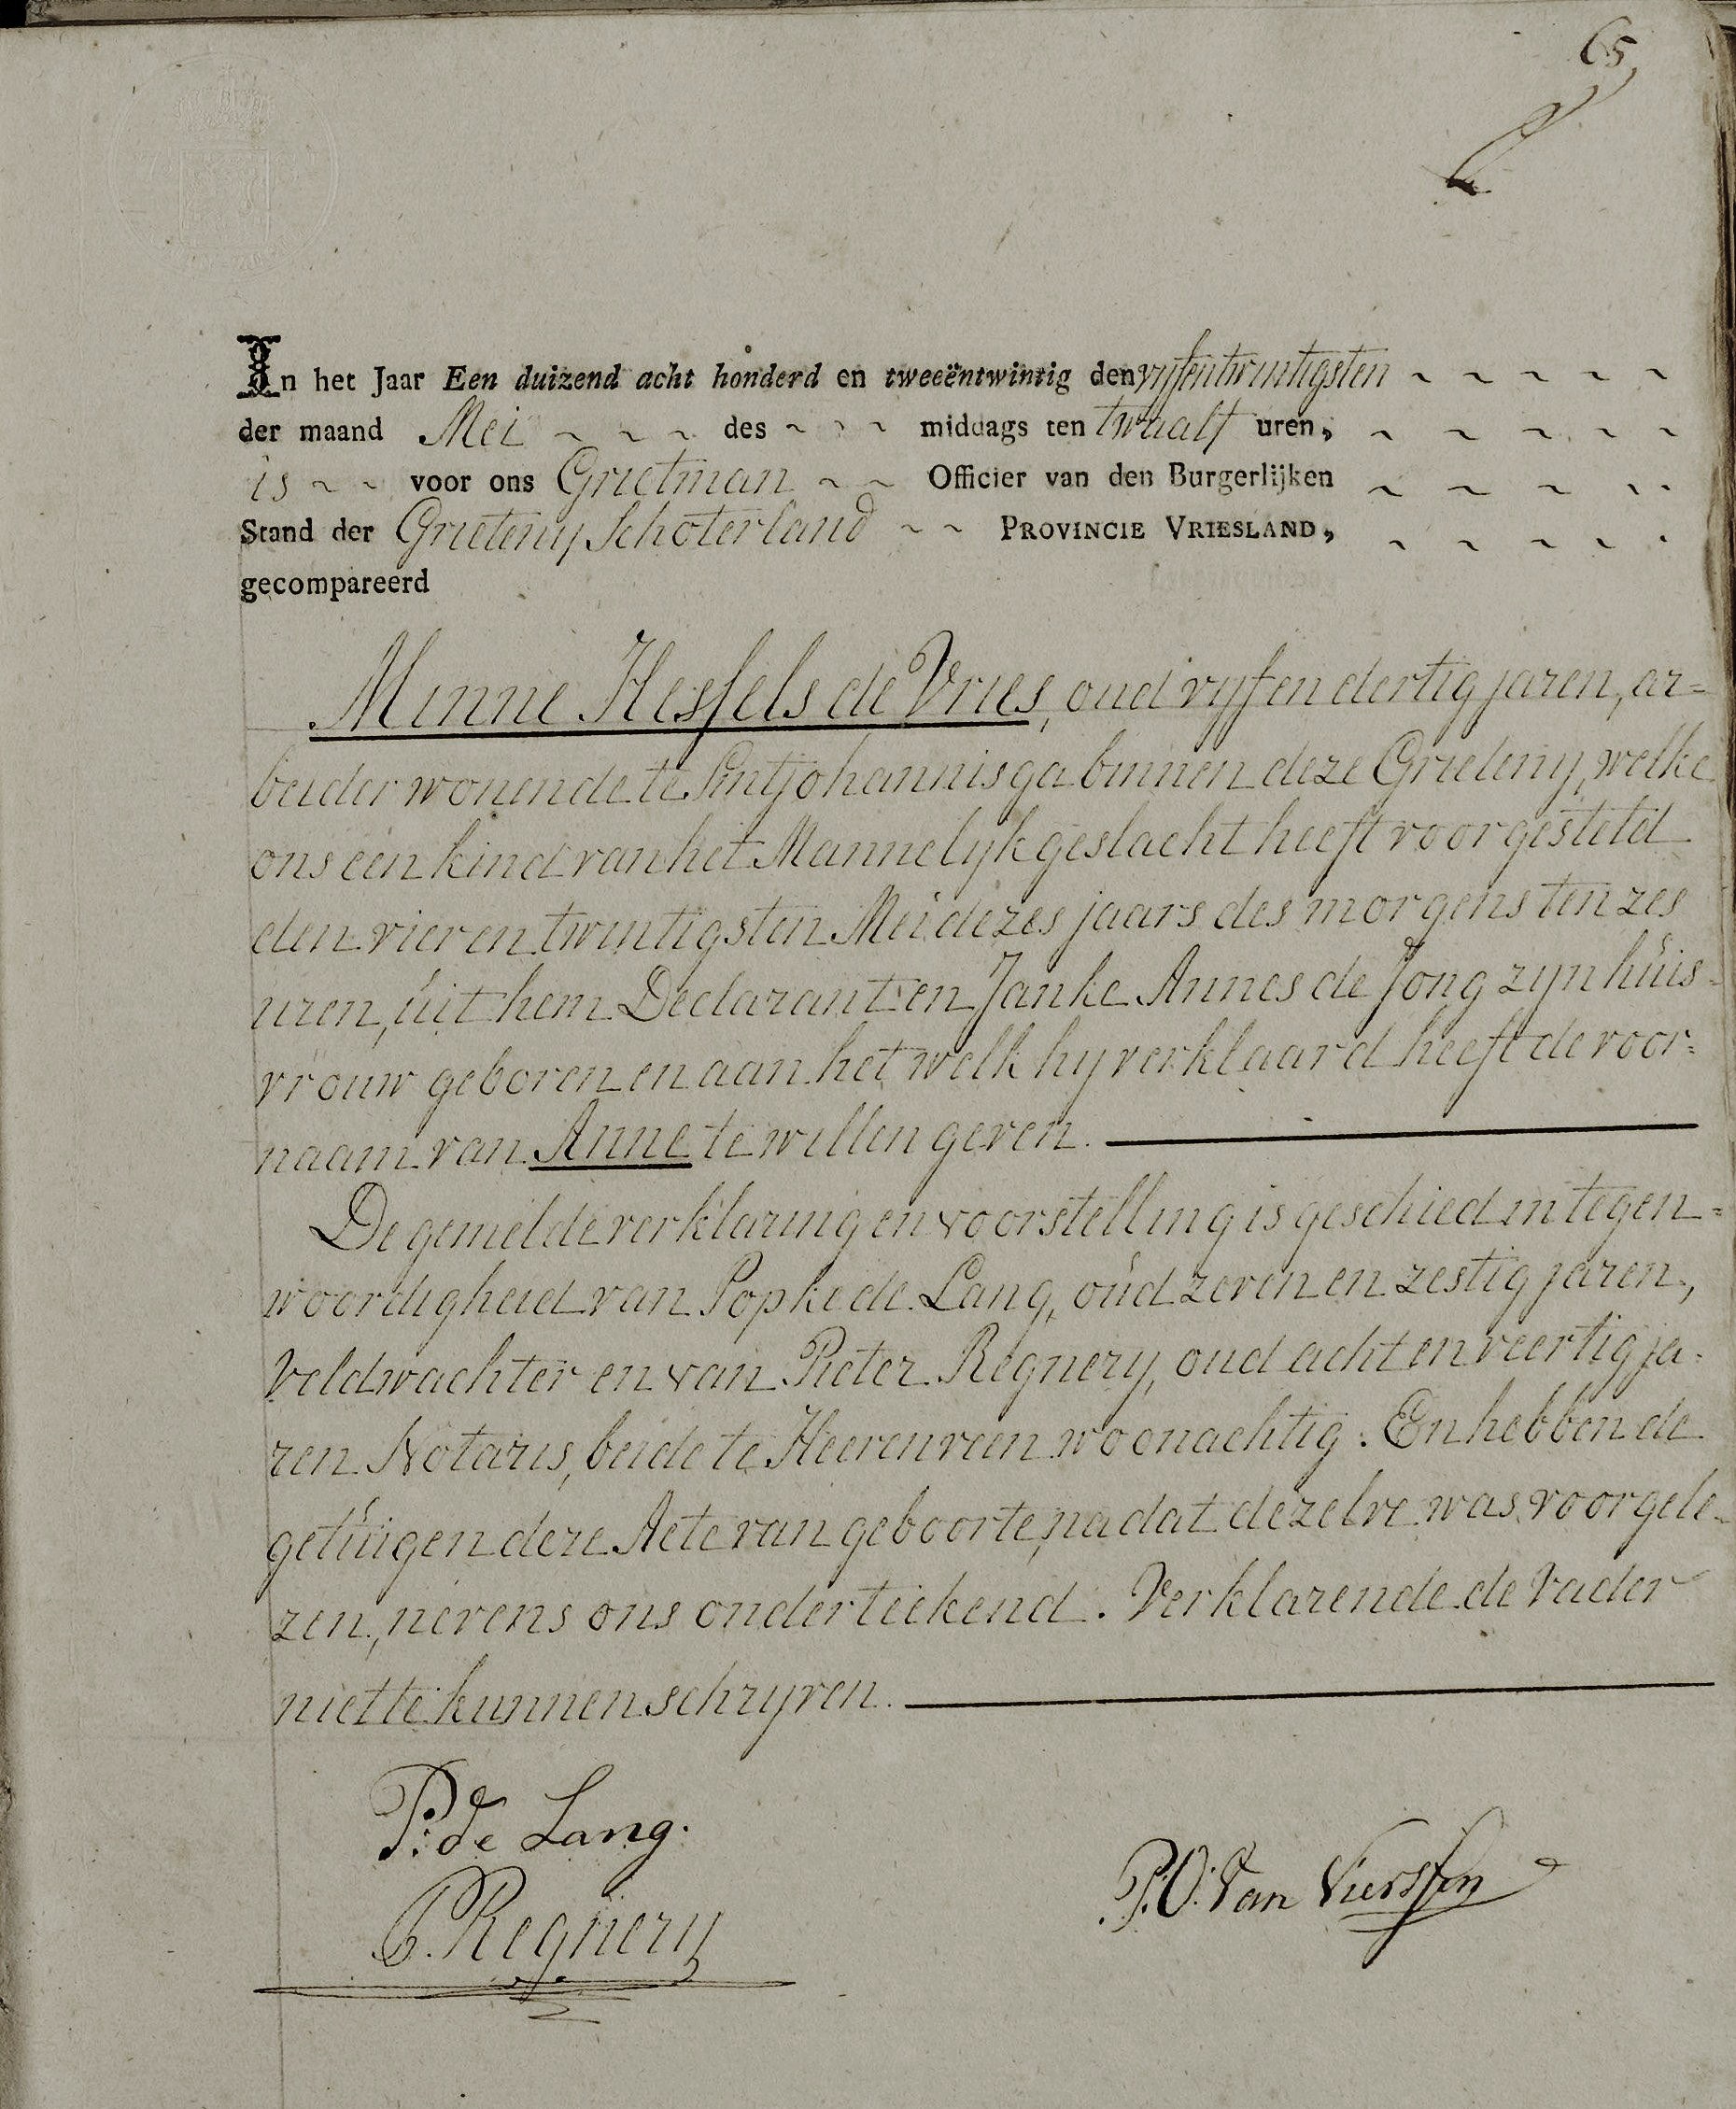 65
In het Jaar Een duizend acht honderd en tweeëntwintig den vyfentwintigsten ~ ~ ~ ~ ~
der maand Mei ~ ~ ~ des ~ ~ ~ middags ten twaalf uren, ~ ~ ~ ~ ~
is ~ ~ voor ons Grietman ~ ~ Officier van den Burgerlijken ~ ~ ~ ~ ~
Stand der Grieteny Schoterland ~ ~ PROVINCIE VRIESLAND, ~ ~ ~ ~ ~
gecompareerd
Minne Hessels de Vries, oud vyf en dertig jaren, ar=
beider wonende te Sintjohannisga binnen deze Grieteny, welke
ons een kind van het Mannelyk geslacht heeft voorgesteld
den vier en twintigsten Mei dezes jaars des morgens ten zes
uren, uit hem Declarant en Janke Annes de Jong zyn huis-
vrouw geboren en aan het welk hy verklaard heeft de voor=
naam van Anne te willen geven.
De gemelde verklaring en voorstelling is geschied in tegen=
woordigheid van Popke de Lang, oud zeven en zestig jaren,
Veldwachter en van Pieter Regnery, oud acht en veertig ja=
ren Notaris, beide te Heerenveen woonachtig. En hebben de
getuigen deze Acte van geboorte, na dat dezelve was voorgele-
zen, nevens ons onderteekend. Verklarende de Vader
niet te kunnen schryven.
P: de Lang.
P. Regnery
P.O. Van Vierssen